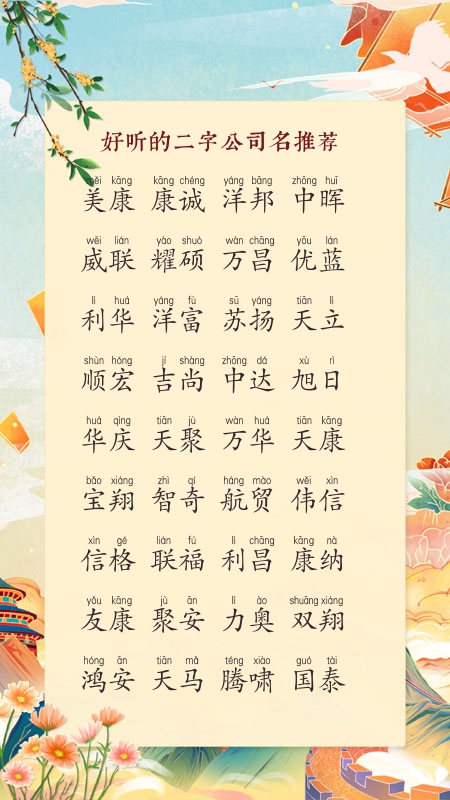 好听的二字公司名推荐
měi kāng kāng chéng yáng bāng zhōng huī
美康 康诚 洋邦 中晖
wēi lián yào shuò wàn chāng yōu lán
威联 耀硕 万昌 优蓝
lì huá yáng fù sū yáng tiān lì
利华 洋富 苏扬 天立
shùn hóng jí shàng zhōng dá xù rì
顺宏 吉尚 中达 旭日
huá qìng tiān jù wàn huá tiān kāng
华庆 天聚 万华 天康
bǎo xiáng zhì qí háng mào wěi xìn
宝翔 智奇 航贸 伟信
xìn gé lián fú lì chāng kāng nà
信格 联福 利昌 康纳
yǒu kāng jù ān lì ào shuāng xiáng
友康 聚安 力奥 双翔
hóng ān tiān mǎ téng xiào guó tài
鸿安 天马 腾啸 国泰